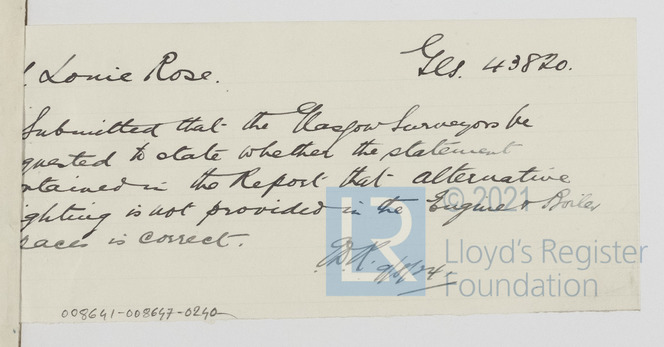 ! Lonie Rose. Gls. 43820.
Submitted that the Glasgow Surveyors be
quested to state whether the statement
ntained in the Report that alternative
ighting is not provided in the Engine & Boiler
paces is correct.
9/8/24
© 2021
LR
Lloyd's Register
Foundation
008641-008647-0240